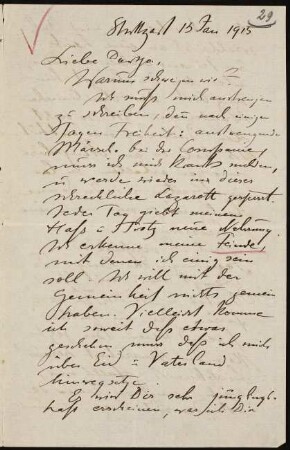 29
Stuttgart 15 Jan 1915
Liebe Darja,
Warum schweigen wir?
Ich muß mich anstrengen
zu schreiben, denn nach einigen
Tagen Freiheit: anstrengende
Märsche bei der Compagnie,
muss ich mich krank melden,
u. werde wieder in dieses
schreckliche Lazarett gesperrt.
Jeder Tag giebt meinem
Haß u. Trotz neue Nahrung.
Ich erkenne meine Feinde!
mit denen ich einig sein
soll. Ich will mit der
Gemeinheit nichts gemein
haben. Vielleicht komme
ich soweit daß etwas
geschehen muss daß ich mich
über Eid u. Vaterland
hinwegsetze.
Es wird Dir sehr jüngling-
haft erscheinen, was ich Dir